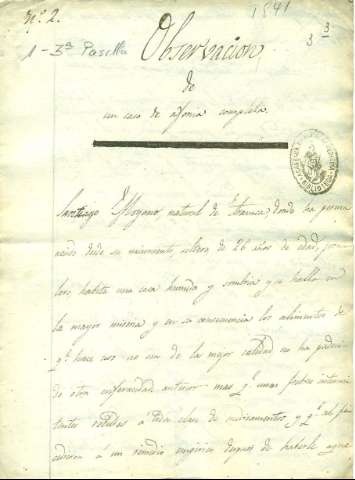 N.º 2.
1841
1 - 3ª Pasilla
3 3
Observacion
de
un caso de afonia completa
Santiago Moyano, natural de Atauca, donde ha perma
necido desde su nacimiento, soltero, de 26 años de edad, jorna
lero habita una casa humeda y sombria y se halla en
la mayor miseria y en su consecuencia los alimentos de
q.e hace uso no son de la mejor calidad no ha padeci
do otra enfermedad anterior mas q.e unas fiebres intermi
tentes rebeldes á toda clase de medicamentos y q.e al fin
cedieron á un remedio empirico despues de haberle aque